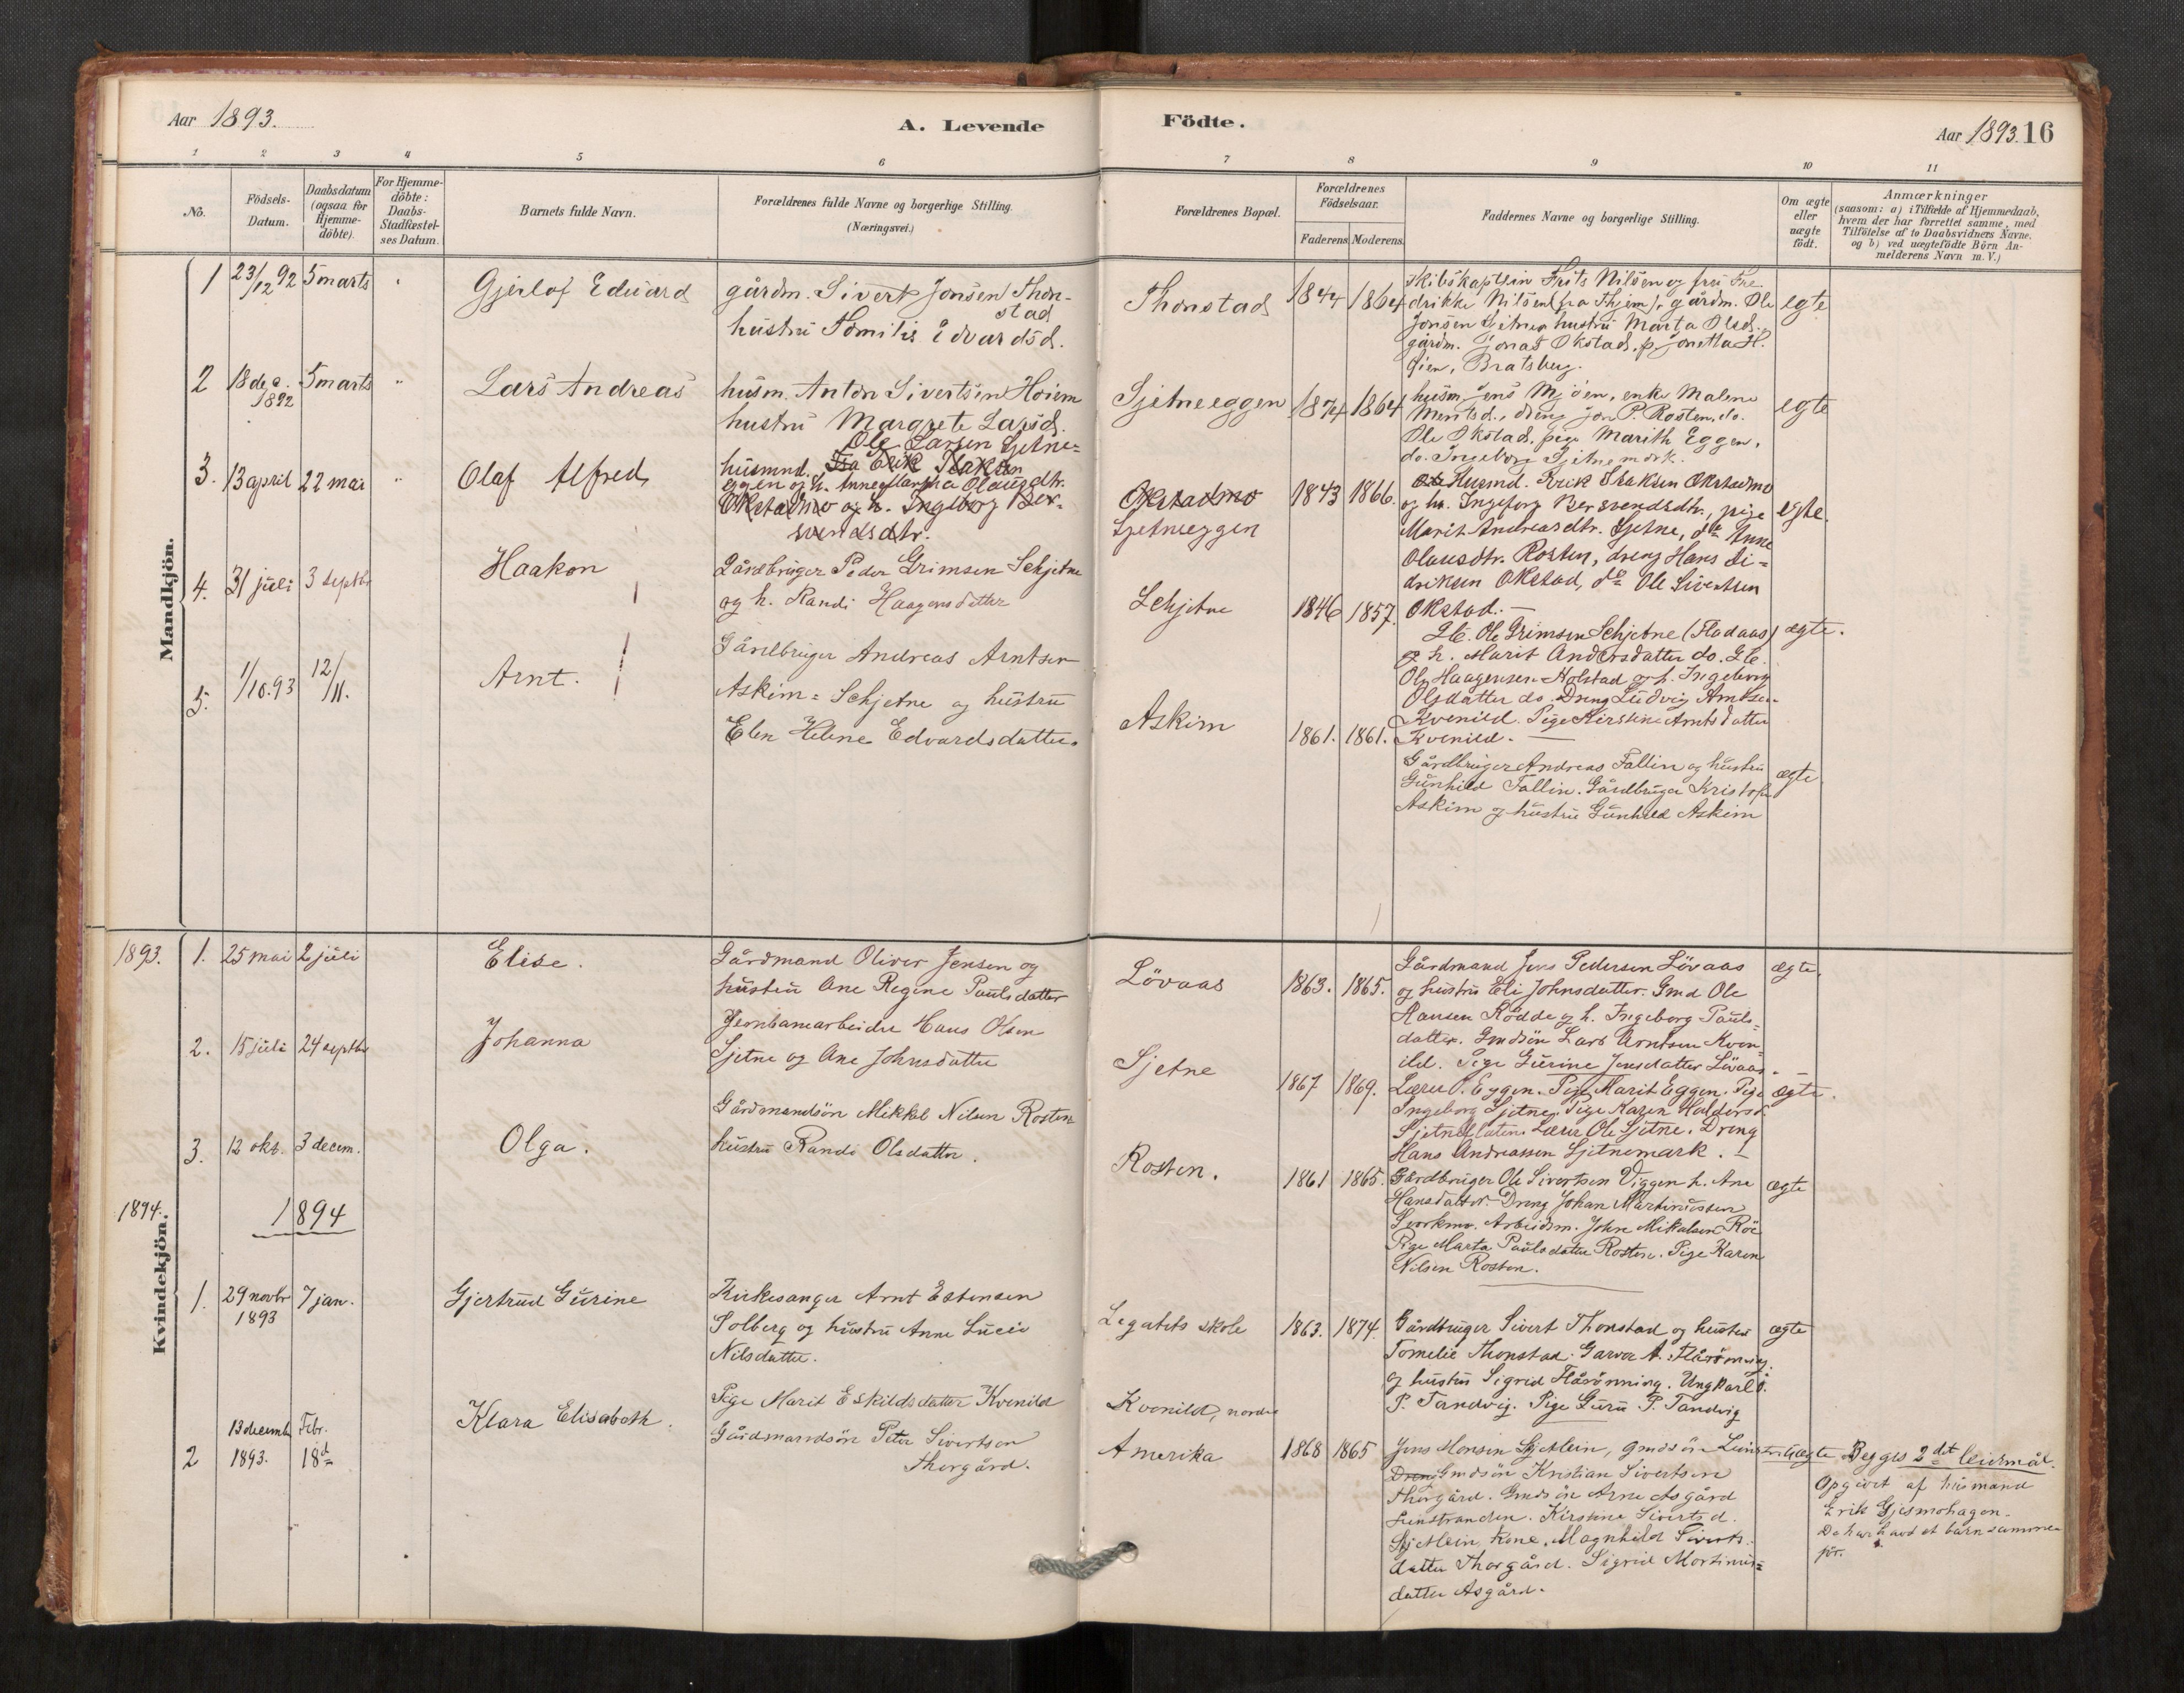 Aar 1893.
A. Levende
Födte.
Aar 1893. 16
1 2 3 4 5 6 7 8 9 10 11
No.
Födsels-Datum.
Daabsdatum (ogsaa for Hjemme-döbte).
For Hjemme-döbte: Daabs-Stadfæstel-ses Datum.
Barnets fulde Navn.
Forældrenes fulde Navne og borgerlige Stilling.
(Næringsvei.)
Forældrenes Bopæl.
Forældrenes Födselsaar.
Faderens. Moderens.
Faddernes Navne og borgerlige Stilling.
Om ægte eller uægte födt.
Anmærkninger
(saasom: a) i Tilfælde af Hjemmedaab,
hvem der har forrettet samme, med
Tilföielse af to Daabsvidners Navne,
og b) ved uægtefödte Börn An-
melderens Navn m. V.)
Mandkjön.
1 23/12 92 5 marts "
Gjerlof Edvard
gårdm. Sivert Jonsen Thon-
stad
hustru Tomilie Edvardsd.
Thonstad
1844 1864
Skibskaptein Frits Nilsen og frü Fre-
drikke Nilsen (fra Thjem), gårdm. Ole
Jonsen Sjetne, hustru Marta Olsd.
gårdm. Jonas Okstad, p. Jonetta H.
Øien, Bratsberg.
egte
2 18 dec. 1892 5 marts "
Lars Andreas
husm. Anton Sivertsen Hoiem
hustru Margrete Larsd.
Sjetneeggen
1874 1864
husm. Jens Mjøen, enke Malene
Mentsd., dreng Jon P. Rosten, do.
Ole Okstad, pige Marith Eggen,
do. Ingeborg Sjetnemark.
egte
3. 13 april 22 mai "
Olaf Alfred
Ole Larsen Sjetne-
husmnd. Isa Erik Isaksen
eggen og h. Anne Martha Olausdtr.
Okstadmo og h. Ingeborg Ber-
svendsdtr.
Okstadmo
Sjetneeggen
1843 1866.
Husmd. Erik Isaksen Okstadmo
og h. Ingeborg Bersvendsdtr., pige
Marit Andreasdtr. Sjetne, do Anne
Olausdtr. Rosten, dreng Hans Di-
driksen Okstad, do Ole Sivertsen
Okstad. —
egte.
4. 31 juli 3 septbr
Haakon
Gårdbruger Peder Grimsen Schjetne
og h. Randi Haagensdatter
Schjetne
1846 1857.
Gb. Ole Grimsen Schjetne (Fladaas)
og h. Marit Andersdatter do. Gb.
Ole Haagensen Holstad og h. Ingeborg
Olsdatter do. Dreng Ludvig Arntsen
Kvenild. Pige Kirstine Arntsdatter
Kvenild. —
ægte.
5. 1/10.93 12/11.
Arnt.
Gårdbruger Andreas Arntsen
Askim = Schjetne og hustru
Elen Helene Edvardsdatter.
Askim
1861. 1861.
Gårdbruger Andreas Fallin og hustru
Gunhild Fallin. Gårdbruger Kristofer
Askim og hustru Gunhild Askim
ægte
Kvindekjön.
1893. 1. 25 mai 2 juli
Elise.
Gårdmand Oliver Jensen og
hustru Ane Regine Paulsdatter
Lövaas
1863. 1865.
Gårdmand Jens Pedersen Lövaas
og hustru Eli Johnsdatter. Gmd Ole
Hansen Rödde og h. Ingeborg Pauls-
datter. Gmdsön Lars Arntsen Kven-
ild. Pige Gurine Jensdatter Lövaas. —
ægte.
2. 15 juli 24 septbr
Johanna
Jernbanearbeider Hans Olsen
Sjetne og Ane Johnsdatter
Sjetne
1867 1869.
Lærer O. Eggen. Pige Marit Eggen. Pige
Ingeborg Sjetne. Pige Karen Haldorsd.
Sjetneflaten. Lærer Ole Sjetne. Dreng
Hans Andreassen Sjetnemark. —
ægte.
3. 12 okt. 3 decem.
Olga.
Gårdmandsön Mikkel Nilsen Rosten
hustru Randi Olsdatter.
Rosten.
1861 1865.
Gårdbruger Ole Sivertsen Viggen h. Ane
Hansdatter. Dreng Johan Martinussen
Svorkmo. Arbeidsm. John Mikalsen Röe
Pige Marta Paulsdatter Rosten. Pige Karen
Nilsen Rosten.
ægte
1894.
1894
1. 29 novbr 1893 7 jan.
Gjertrud Gurine
Kirkesanger Arnt Estensen
Solberg og hustru Anne Lucie
Nilsdatter.
Legatets skole
1863. 1874.
Gårdbruger Sivert Thonstad og hustru
Tomelie Thonstad. Garver A. Flårönning
og hustru Sigrid Flårönning. Ungkarl O.
P. Tandvig. Pige Guru P. Tandvig
ægte
2 13 decemb. 1893. Febr. 18d
Klara Elisabeth.
Pige Marit Eskildsdatter Kvenild
Gårdmandsön Peter Sivertsen
Thorgård.
Kvenild, nordre
Amerika
1868 1865
Jens Monsen Sjetlein, gmdsön Leinstr.
Dreng Gmdsön Kristian Sivertsen
Thorgård. Gmdsön Arne Asgård
Leinstranden. Kirstine Sivertsd.
Sjetlein, kone. Magnhild Siverts-
datter Thorgård. Sigrid Mortinus-
datter Asgård.
uægte
Begges 2det leiermål.
Opgivet af husmand
Erik Gjesmohagen.
De har havt et barn sammen
för.